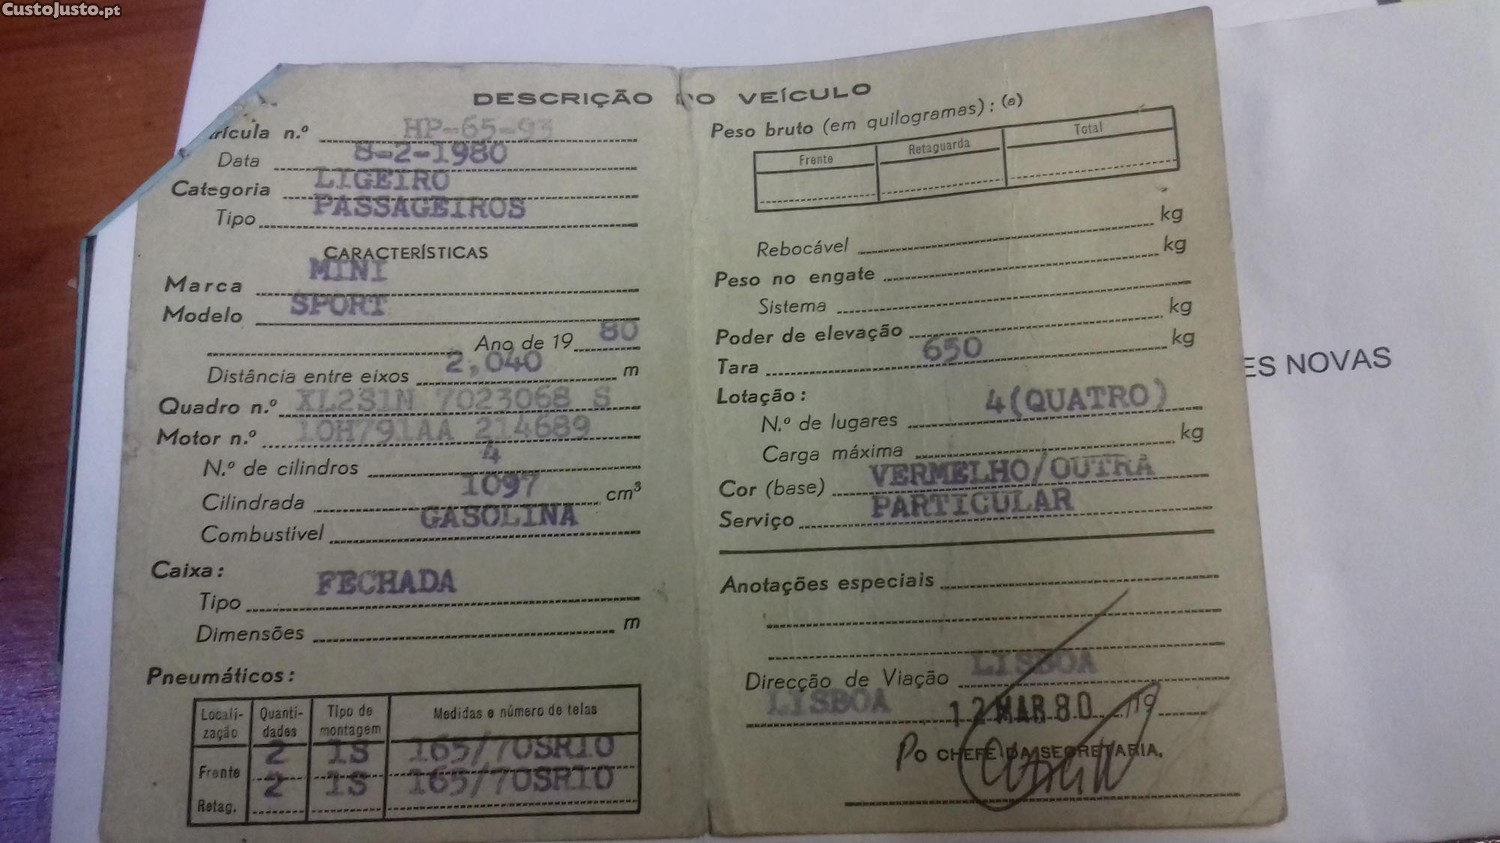 CustoJusto.pt
DESCRIÇÃO DO VEÍCULO
rícula n.º HP-65-93
Data 8-2-1980
Categoria LIGEIRO
Tipo PASSAGEIROS
CARACTERÍSTICAS
Marca MINI
Modelo SPORT
Ano de 19 80
Distância entre eixos 2,040 m
Quadro n.º XL2S1N 7023068 S
Motor n.º 10H791AA 214689
N.º de cilindros 4
Cilindrada 1097 cm³
Combustivel GASOLINA
Caixa:
Tipo FECHADA
Dimensões m
Pneumáticos:
Locali- Quanti- Tipo de Medidas e número de telas
zação dades montagem
Frente 2 1S 165/70SR10
Retag. 2 1S 165/70SR10
Peso bruto (em quilogramas): (a)
Frente Retaguarda Total
Rebocável kg
Peso no engate kg
Sistema
Poder de elevação kg
Tara 650 kg
Lotação:
N.º de lugares 4(QUATRO)
Carga máxima kg
Cor (base) VERMELHO/OUTRA
Serviço PARTICULAR
Anotações especiais
Direcção de Viação LISBOA
LISBOA 12 MAR 80 19
Po CHEFE DA SECRETARIA,
ES NOVAS